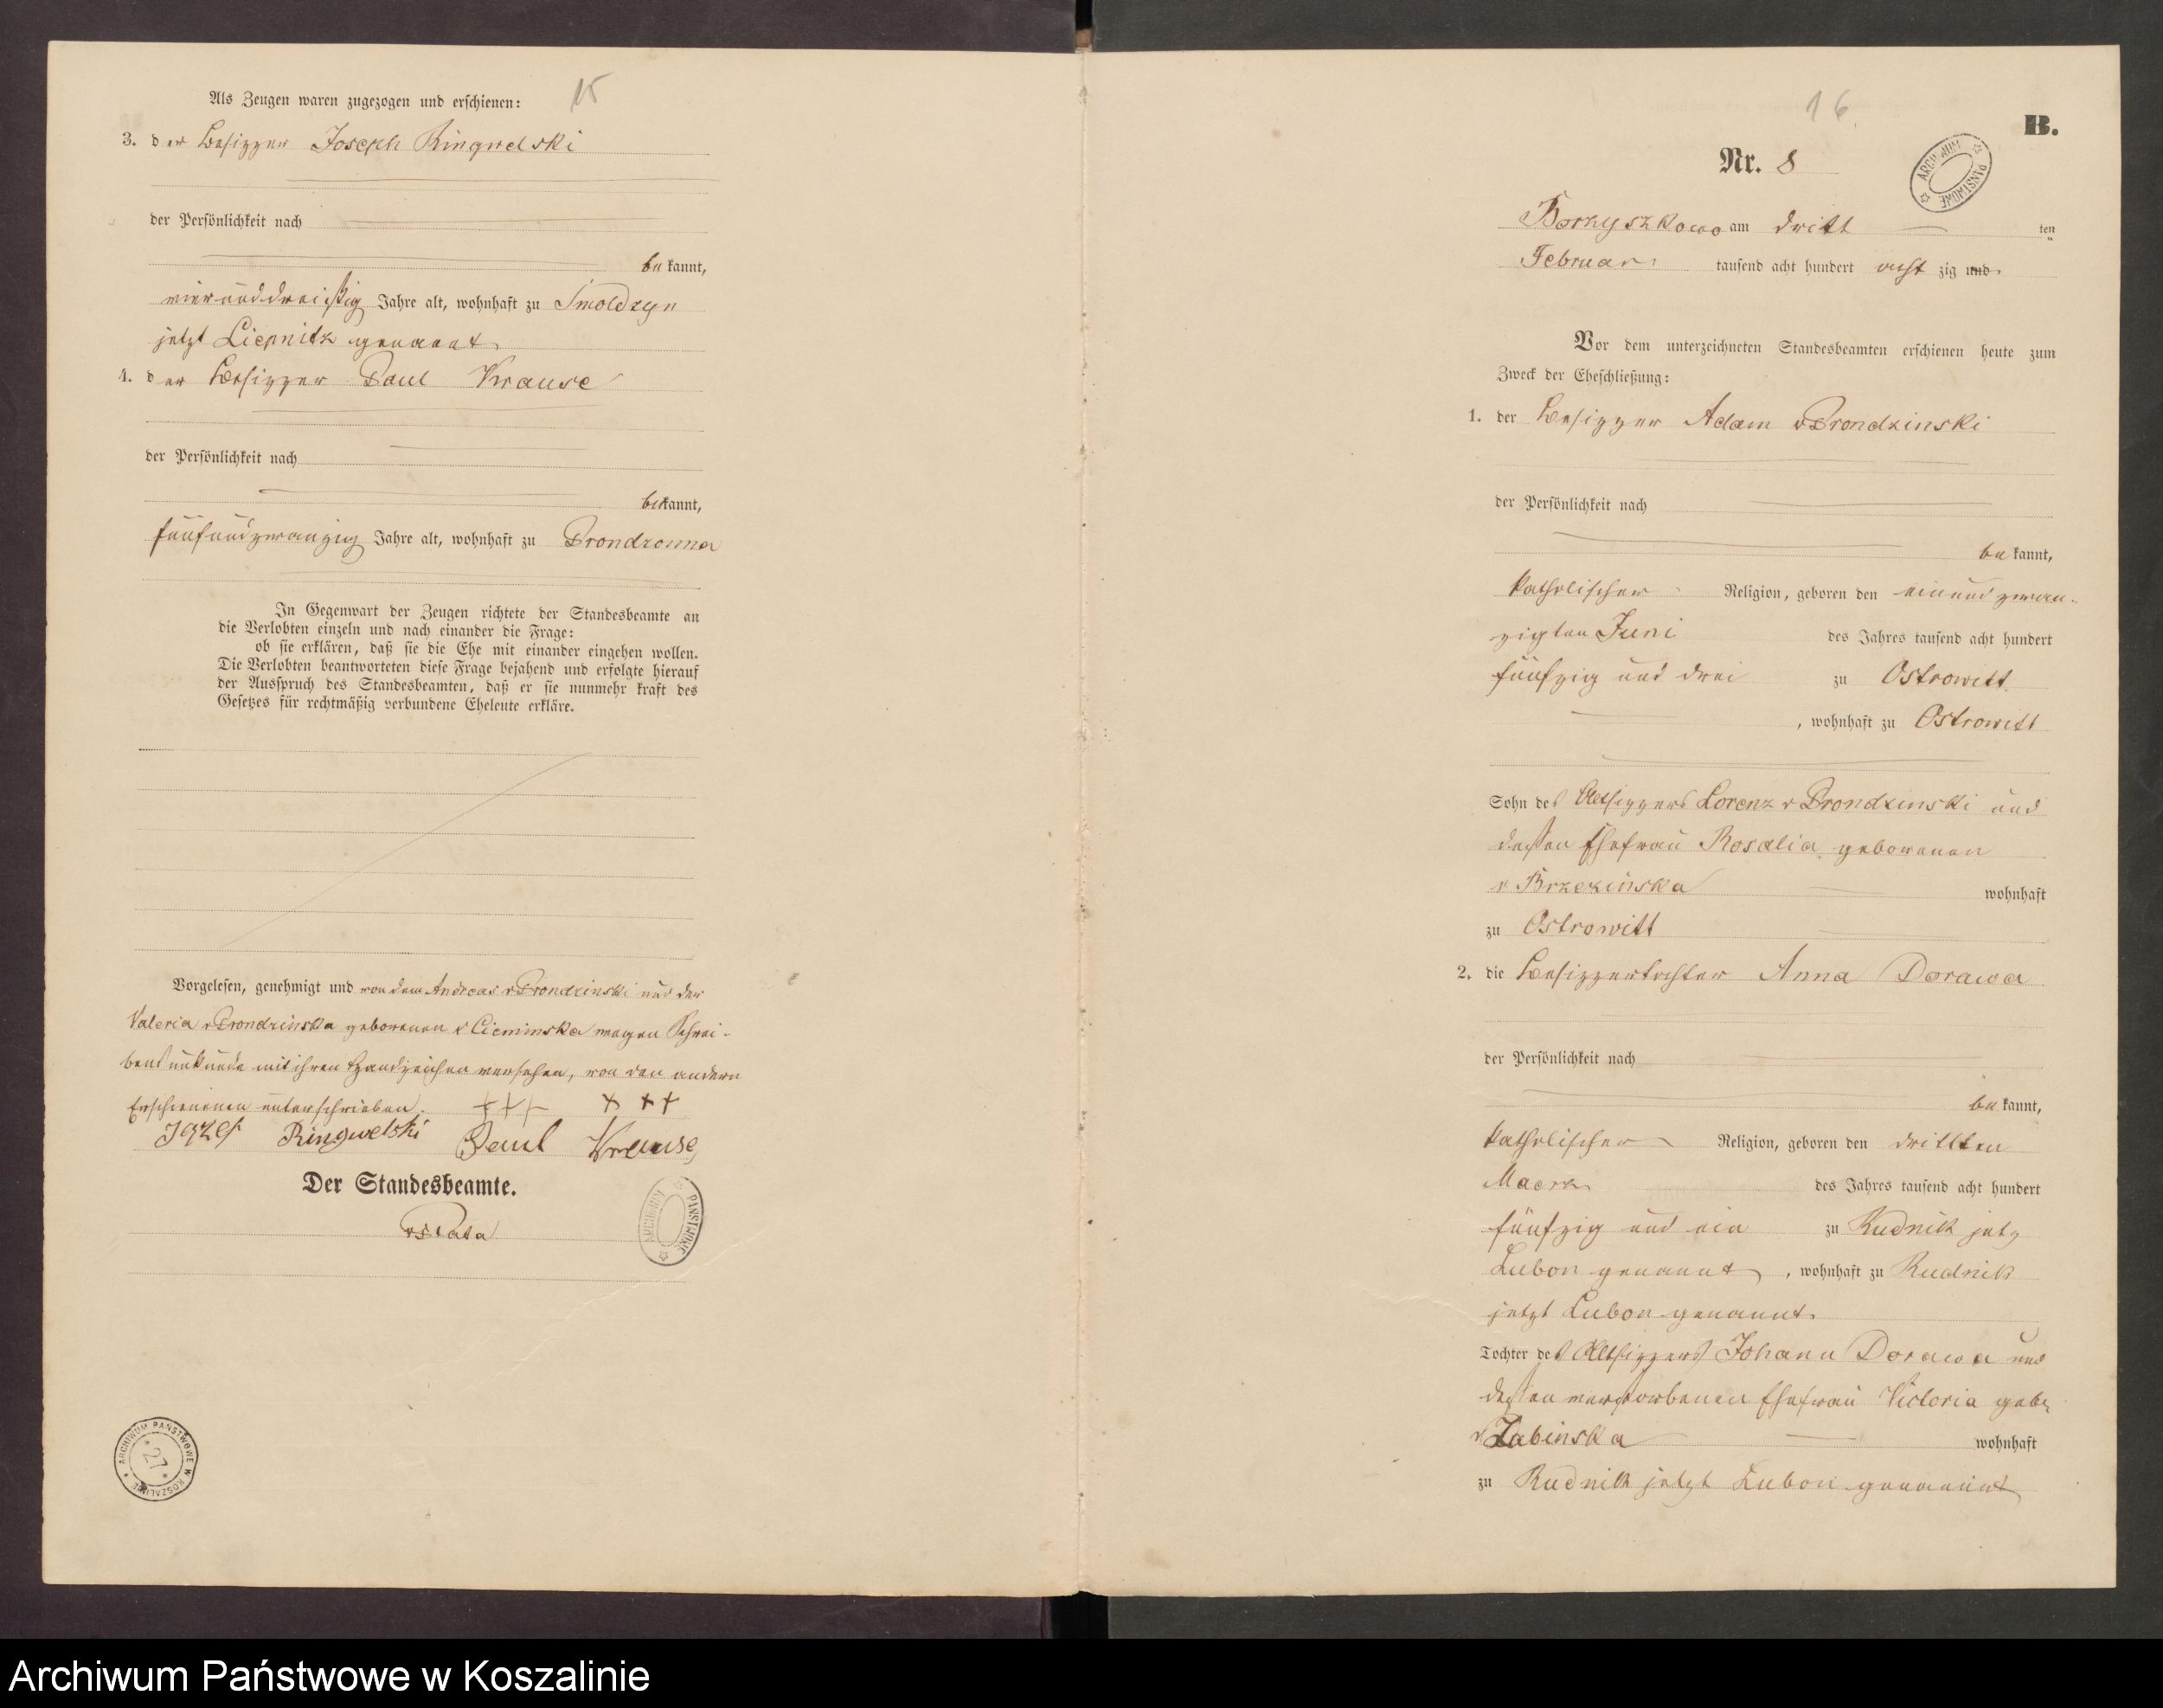 15
Als Zeugen waren zugezogen und erschienen:
3. der Besizzer Joseph Ringwelski
der Persönlichkeit nach
bekannt,
vierunddreißig Jahre alt, wohnhaft zu Smoldzyn
jetzt Liepnitz genannt
4. der Besizzer Paul Krause
der Persönlichkeit nach
bekannt,
fünfundzwanzig Jahre alt, wohnhaft zu Prondzonna
In Gegenwart der Zeugen richtete der Standesbeamte an
die Verlobten einzeln und nach einander die Frage:
ob sie erklären, daß sie die Ehe mit einander eingehen wollen.
Die Verlobten beantworteten diese Frage bejahend und erfolgte hierauf
der Ausspruch des Standesbeamten, daß er sie nunmehr kraft des
Gesetzes für rechtmäßig verbundene Eheleute erkläre.
Vorgelesen, genehmigt und von dem Andreas v Prondzinski und der
Valeria v Prondzinska geborenen v Cieminska wegen Schrei-
bensunkunde mit ihren Handzeichen versehen, von den andern
Erschienenen unterschrieben. +++ +++
Jozef Ringwelski Paul Krause
Der Standesbeamte.
ARCHIWUM PAŃSTWOWE
ARCHIWUM PAŃSTWOWE W KOSZALINIE
27
16
B.
Nr. 8
ARCHIWUM PAŃSTWOWE
Borzyszkowo am dritt ten
Februar tausend acht hundert acht zig und
Vor dem unterzeichneten Standesbeamten erschienen heute zum
Zweck der Eheschließung:
1. der Besizzer Adam v Prondzinski
der Persönlichkeit nach
bekannt,
katholischer Religion, geboren den einundzwan-
zigten Juni des Jahres tausend acht hundert
fünfzig und drei zu Ostrowitt
, wohnhaft zu Ostrowitt
Sohn des Altsizzers Lorenz v Prondzinski und
dessen Ehefrau Rosalia geborenen
v Brzezinska wohnhaft
zu Ostrowitt
2. die Besizzertochter Anna Dorawa
der Persönlichkeit nach
bekannt,
katholischer Religion, geboren den drittten
Maerz des Jahres tausend acht hundert
fünfzig und ein zu Rudnik jetz
Lubon genannt, wohnhaft zu Rudnik
jetzt Lubon genannt
Tochter des Altsizzers Johann Dorawa und
dessen verstorbenen Ehefrau Victoria geb.
v Zabinska wohnhaft
zu Rudnik jetzt Lubon genannt
Archiwum Państwowe w Koszalinie